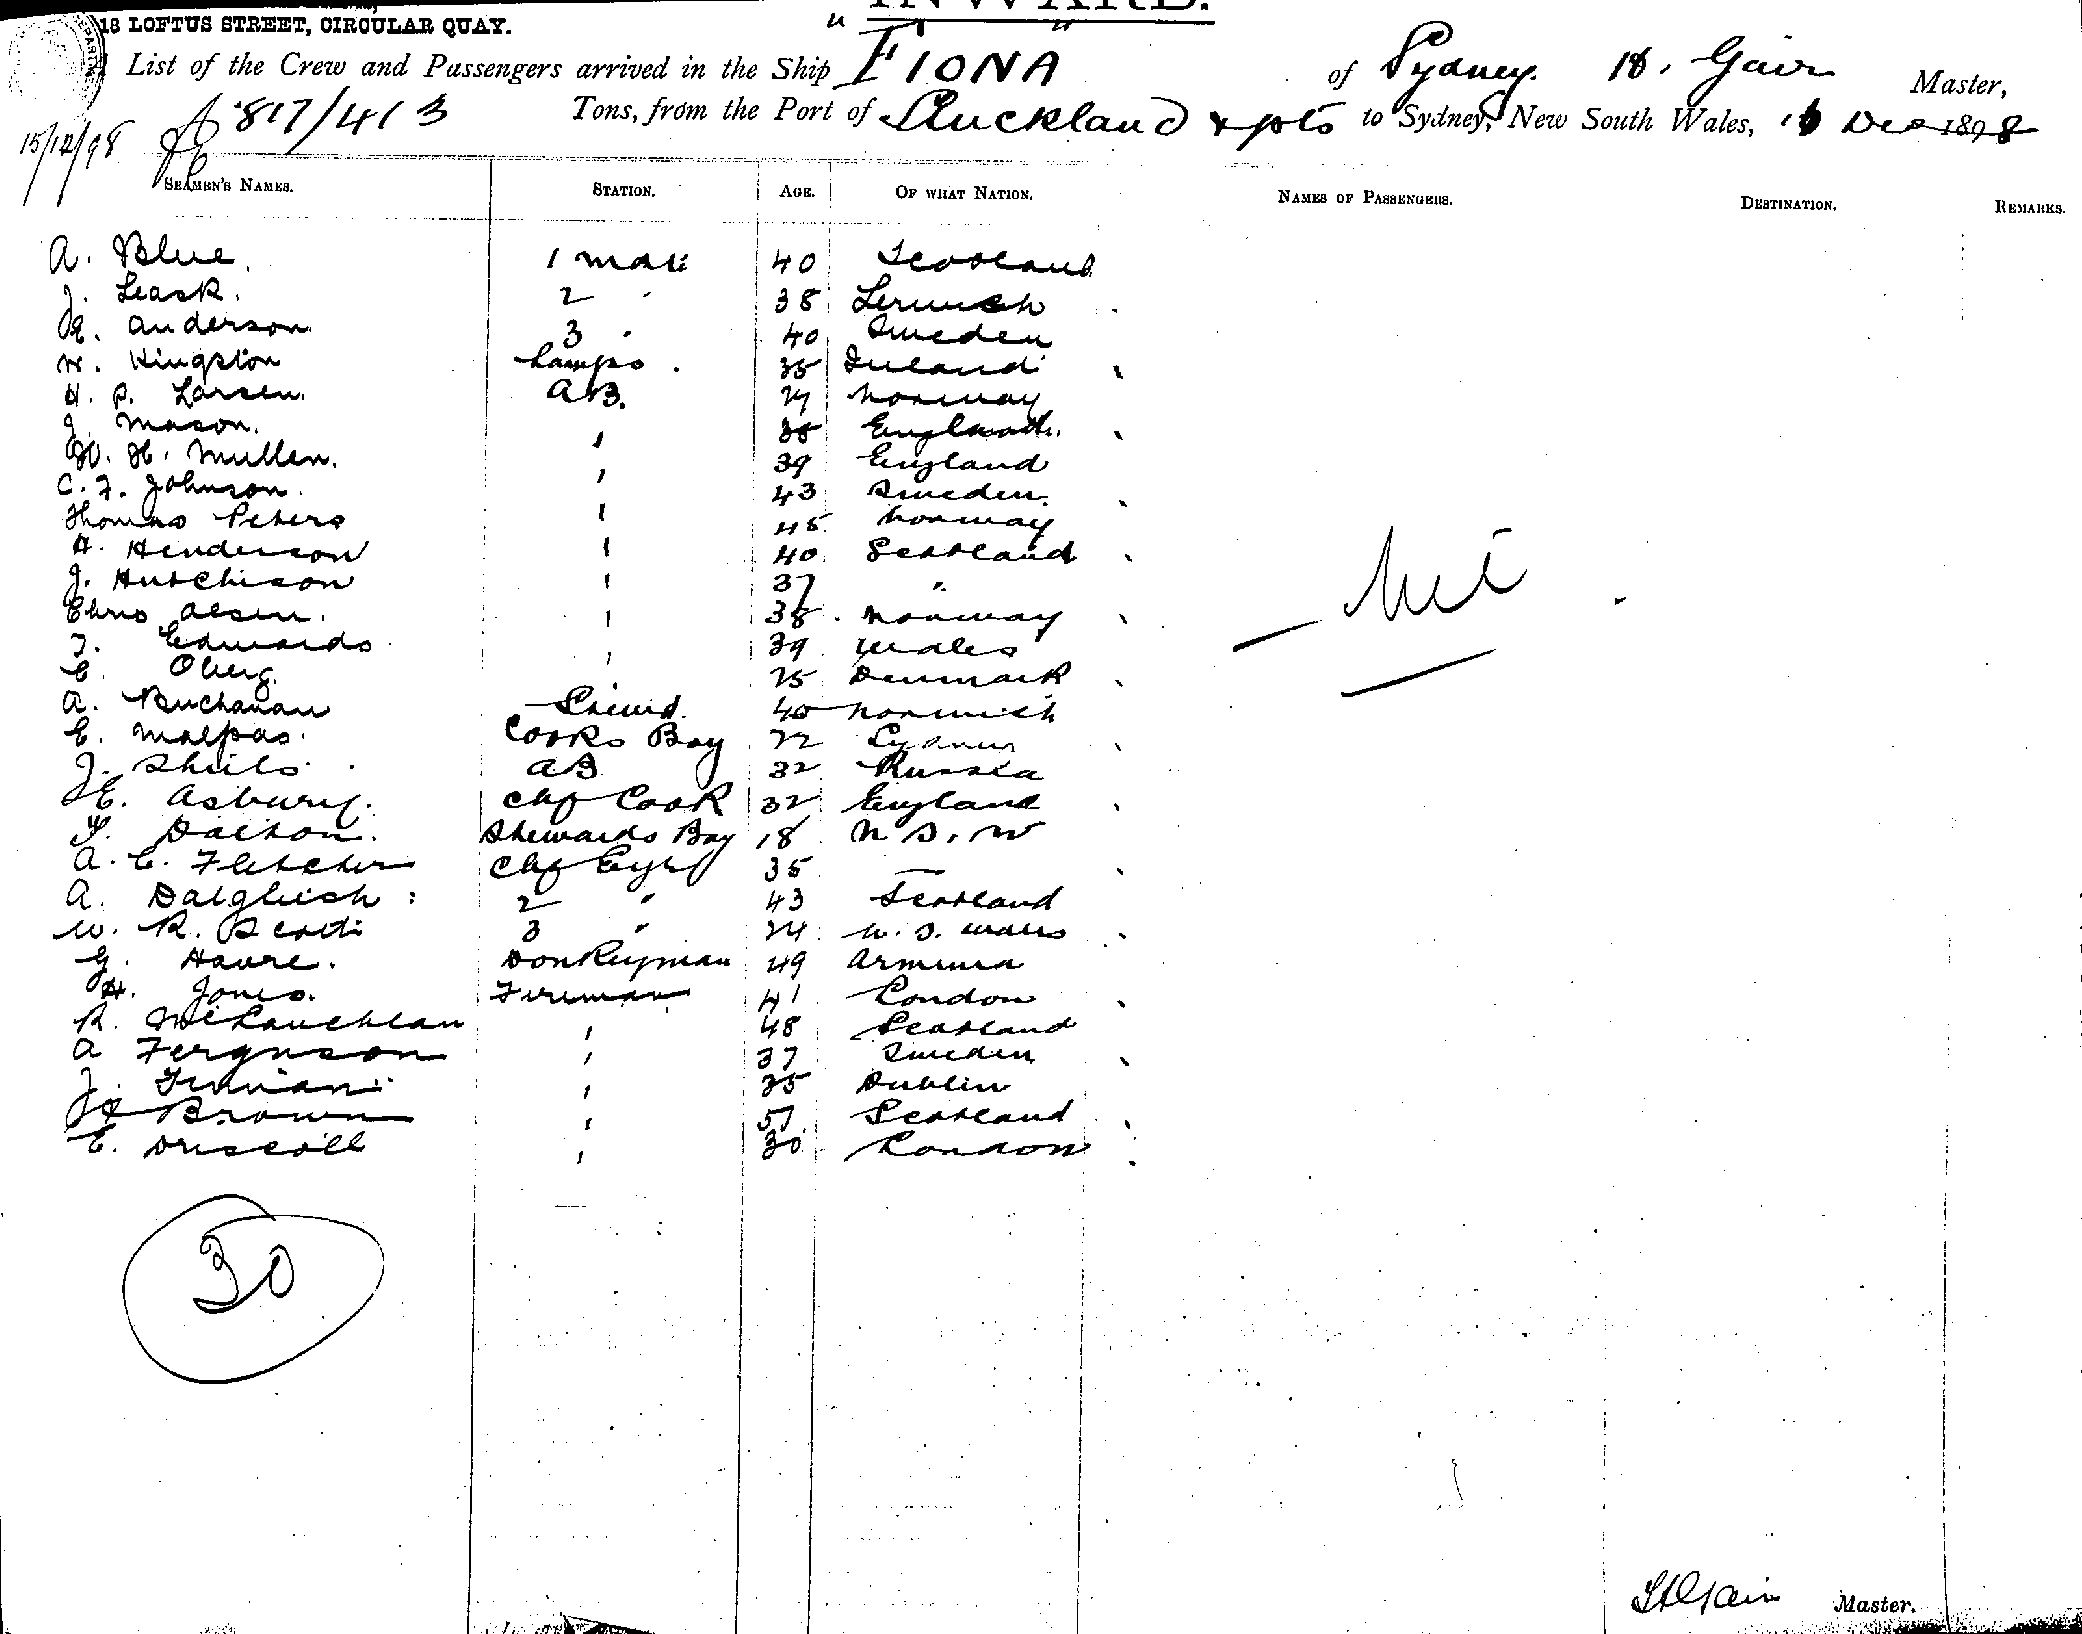 INWARD.
18 LOFTUS STREET, CIRCULAR QUAY.
List of the Crew and Passengers arrived in the Ship "FIONA" of Sydney. Gair Master,
817/413 Tons, from the Port of Auckland & pts to Sydney, New South Wales, Dec 1898
15/12/98
SEAMEN'S NAMES. STATION. AGE. OF WHAT NATION. NAMES OF PASSENGERS. DESTINATION. REMARKS.
A. Blue. 1 mate 40 Scotland
J. Leask. 2 " 38 Lerwick
E. Anderson 3 " 40 Sweden
H. Kingston Lamps. 35 Ireland
H. P. Larsen. AB. 27 Norway
J. Mason. England.
W. H. Mullen. 39 England
C. F. Johnson. 43 Sweden.
Thomas Peters 45 Norway
A. Henderson 40 Scotland
J. Hutchison 37 "
Chris Olsen. 38 Norway
T. Edwards 39 Wales
E. Oberg. 25 Denmark
A. Buchanan Steward. 40
E. Malpas. Cooks Boy 22 Sydney
J. Sheils AB 32 Russia
E. Asbury. Chf Cook 32 England
Dalton. Stewards Boy 18 N S. W
A. E. Fletcher Chf Engr 35 —
A. Dalgliesh 2 " 43 Scotland
W. R. Scott 3 " 24 N. S. Wales
G. Havre. Donkeyman 49 Armenia
H. Jones. Fireman 41 London
R. McLauchlan 48 Scotland
A Ferguson 37 Sweden
J. 35 Dublin
Brown 57 Scotland
E. Driscoll 30 London
— Nil
30
Gair Master.